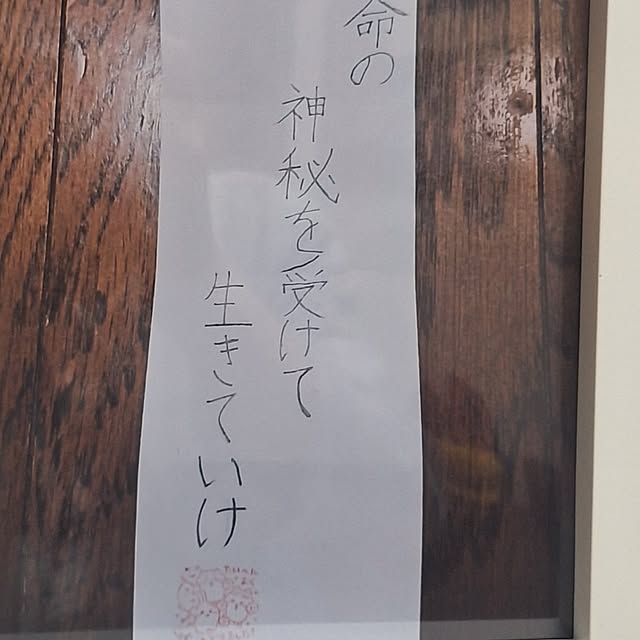 命の
神秘を受けて
生きていけ